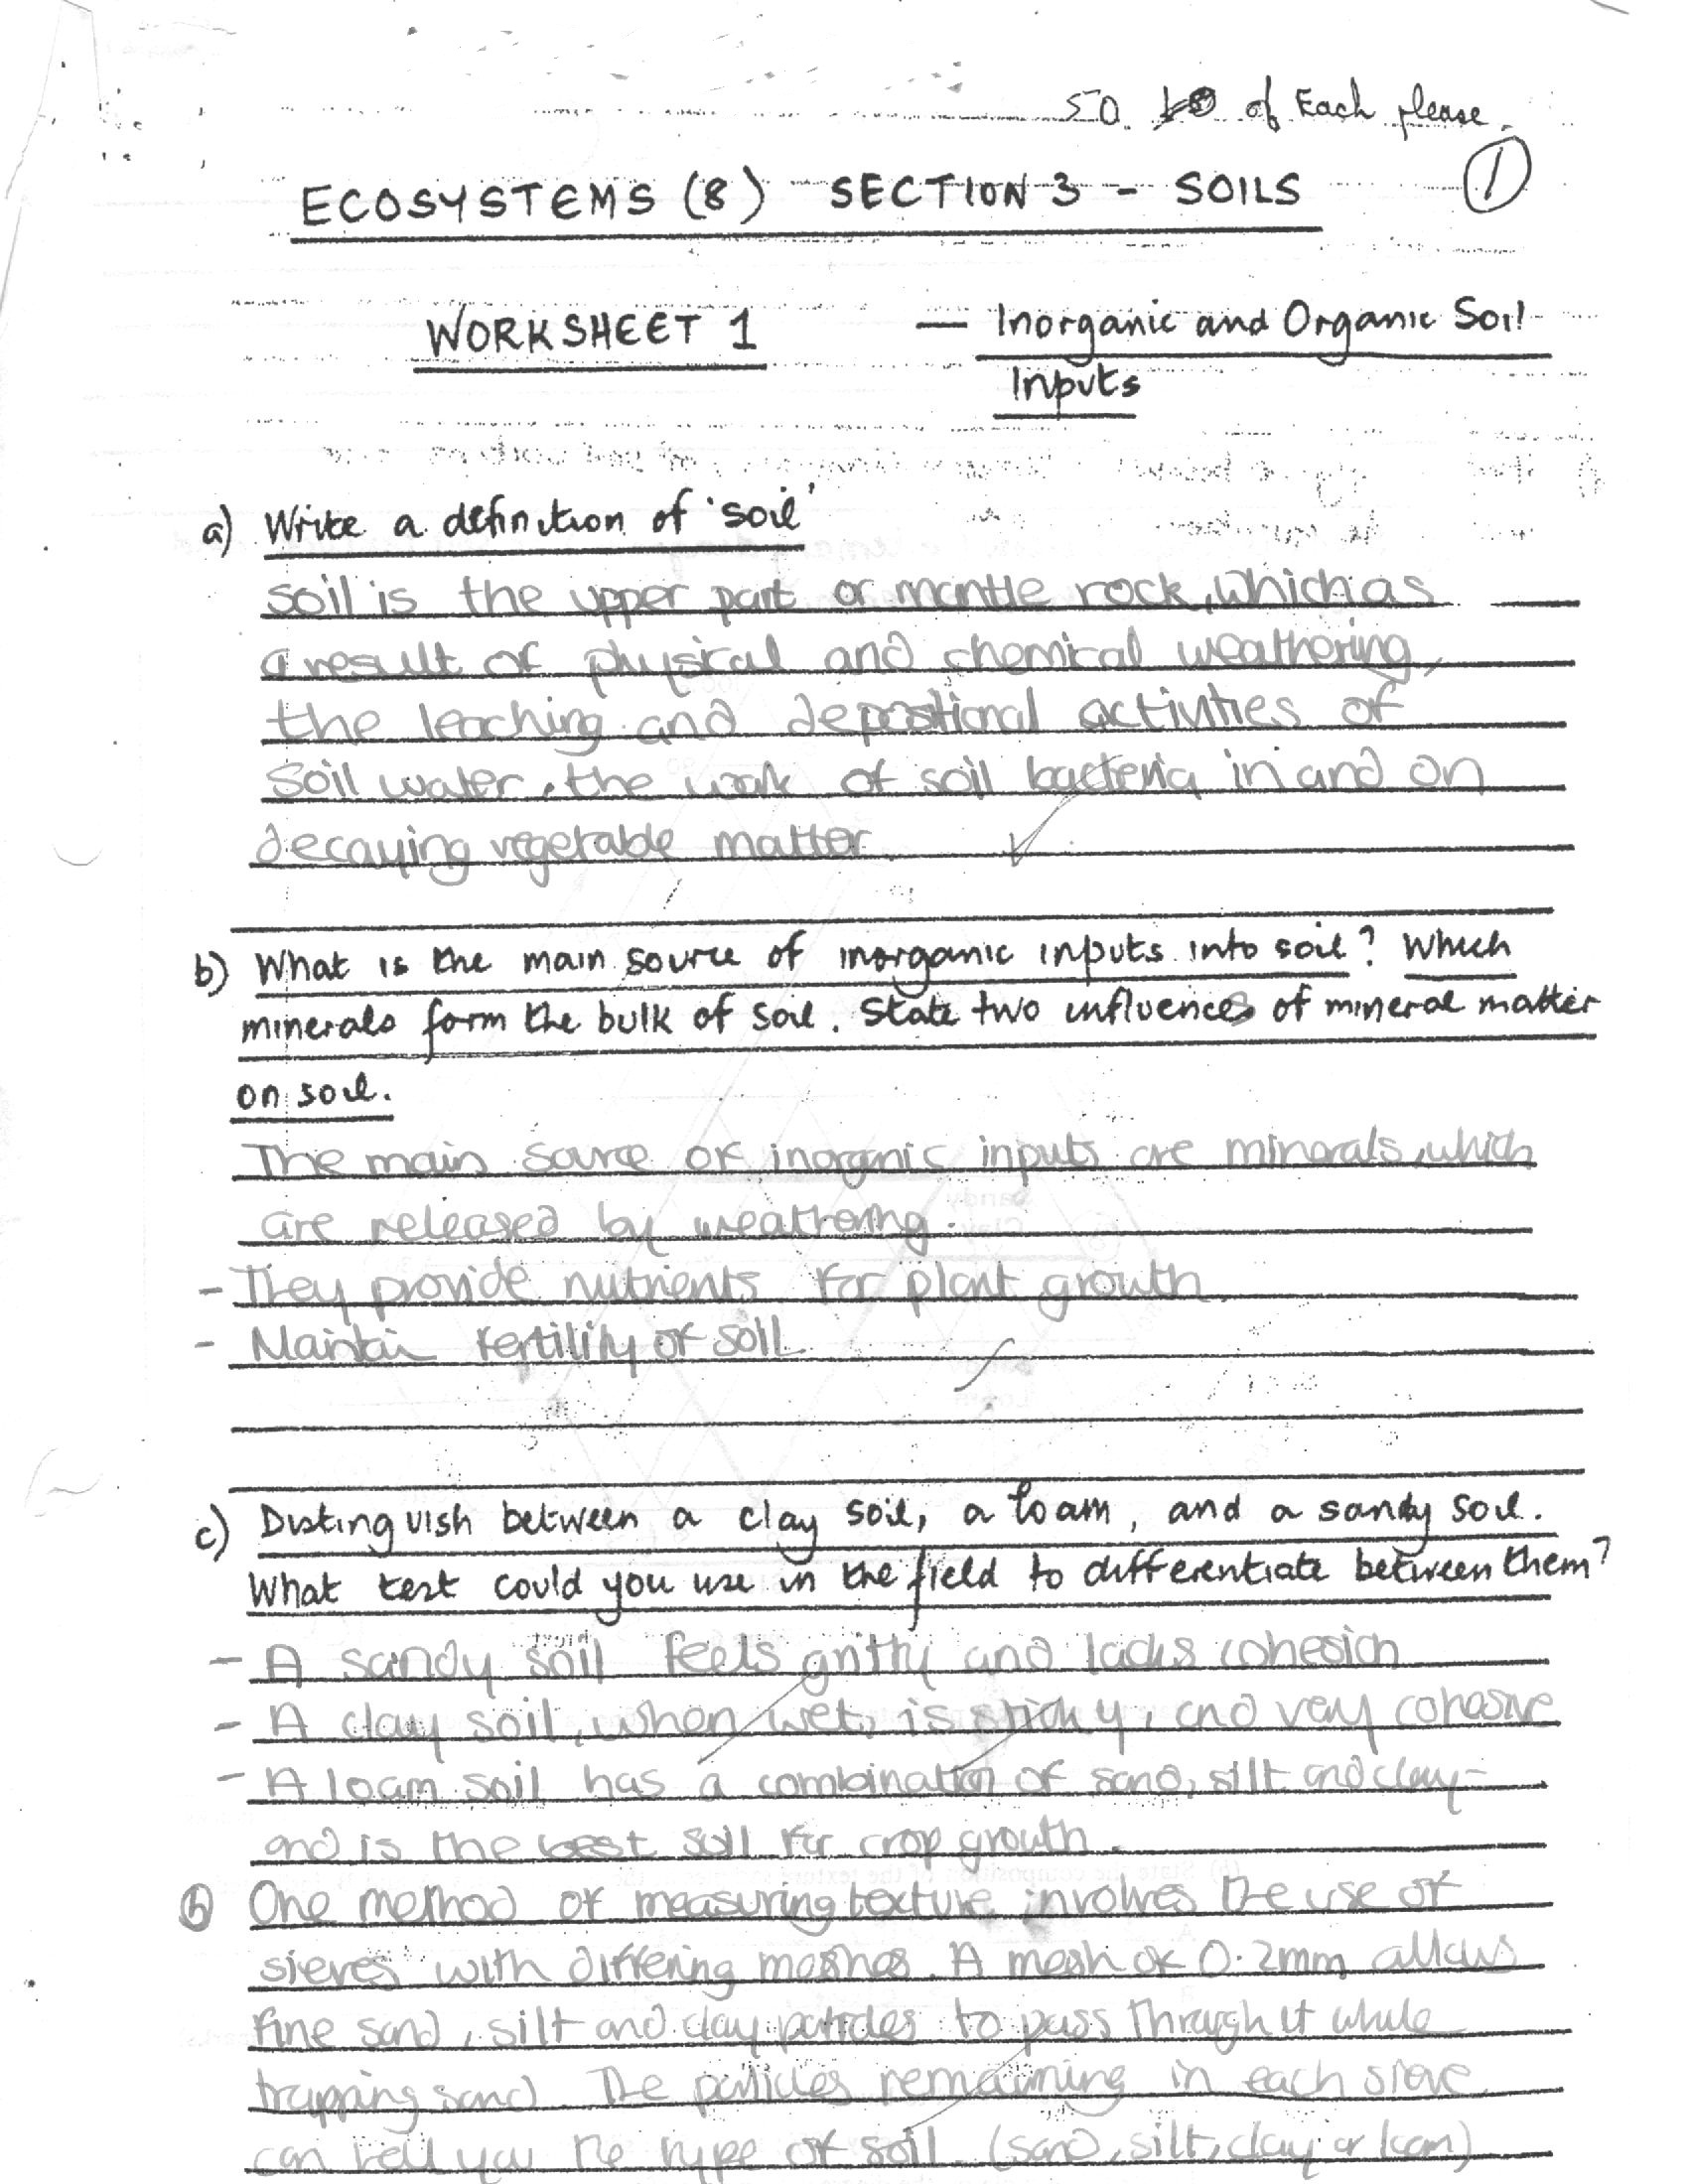 50 of Each please.
1
ECOSYSTEMS (8) SECTION 3 - SOILS
WORKSHEET 1 — Inorganic and Organic Soil
Inputs
a) Write a definition of 'soil'
soil is the upper part or mantle rock, which as
a result of physical and chemical weathering,
the leaching and depositional activities of
soil water, the work of soil bacteria in and on
decaying vegetable matter
b) What is the main source of inorganic inputs into soil? Which
minerals form the bulk of soil. State two influences of mineral matter
on soil.
The main source of inorganic inputs are minerals, which
are released by weathering.
- They provide nutrients for plant growth.
- Maintain fertility of soil
c) Distinguish between a clay soil, a loam, and a sandy soil.
What test could you use in the field to differentiate between them?
- A sandy soil feels gritty and lacks cohesion
- A clay soil, when wet, is sticky, and very cohesive
- A loam soil has a combination of sand, silt and clay-
and is the best soil for crop growth.
b) One method of measuring texture involves the use of
sieves with differing meshes. A mesh of 0.2mm allows
fine sand, silt and clay particles to pass through it while
trapping sand. The particles remaining in each sieve
can tell you the type of soil. (sand, silt, clay or loam)